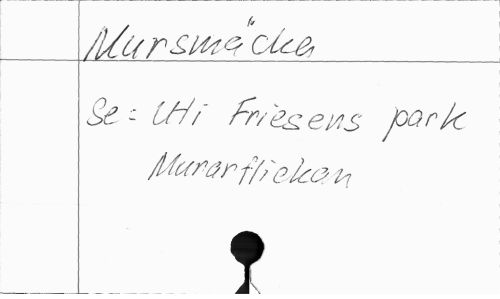 Mursmäcka
Se = Uti Friesens park
Murarflickan